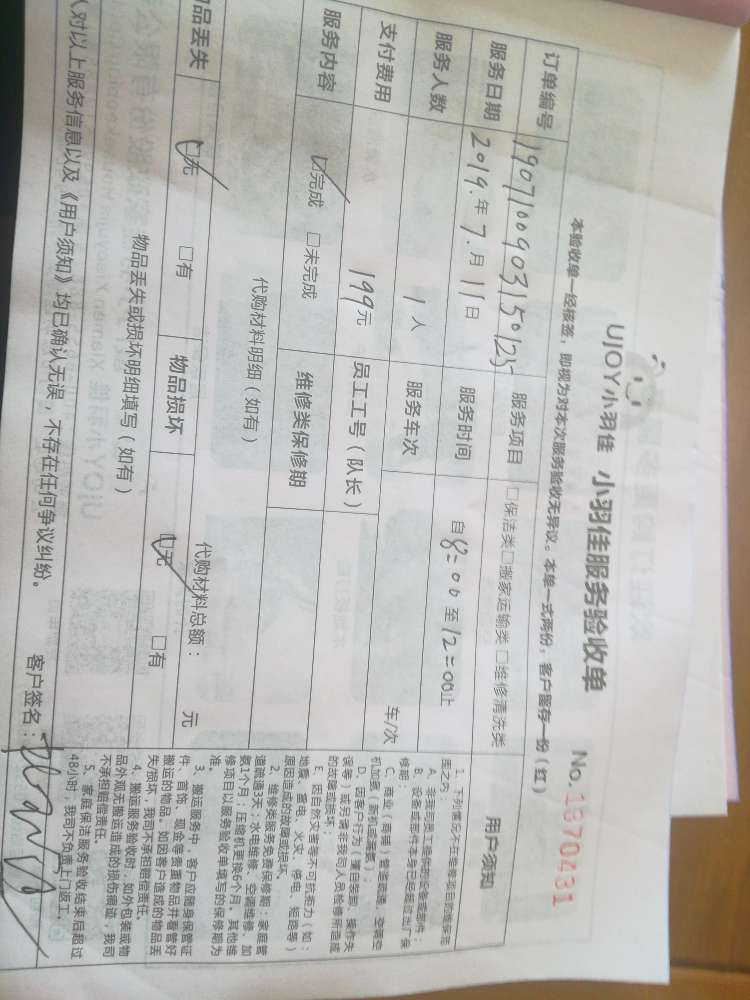 UJOY小羽佳 小羽佳服务验收单 No.1370431
本验收单一经核签，即视为对本次服务验收无异议。本单一式两份，客户留存一份（红）
订单编号 1907100903150125 服务项目 □保洁类□搬家运输类□维修清洗类
服务日期 2019.年7.月11日 服务时间 自8=00至12=00止
服务人数 1人 服务车次 车/次
支付费用 199元 员工工号（队长）
服务内容 ☑完成 □未完成 维修类保修期
代购材料明细（如有）
代购材料总额： 元
品丢失 ☑无 □有 物品损坏 ☑无 □有
物品丢失或损坏明细填写（如有）
人对以上服务信息以及《用户须知》均已确认无误，不存在任何争议纠纷。 客户签名：
用户须知
1、下列情况不在维修项目的维保范
围之内：
A、非我司提供的设备或部件；
B、设备或部件本身已经超过出厂保
修期；
D、因客户行为（擅自装卸、操作失
误等）或另请非我司人员检修所造成
的故障或损坏；
E、因自然灾害等不可抗拒力（如：
地震、雷电、火灾、停电、短路等）
原因造成的故障或损坏。
2、维修类服务免费保修期：家庭管
道疏通3天；水电维修、空调维修、加
氟1个月；压缩机更换6个月。其他维
修项目以服务验收单填写的保修期为
准。
3、搬运服务中，客户应随身保管证
件、首饰、现金等贵重物品并看管好
搬运的物品。如因客户造成的物品丢
失/损坏，我司不承担赔偿责任。
4、搬运服务验收时，如外包装或物
品外观无搬运造成的损伤痕迹，我司
不承担赔偿责任。
5、家庭保洁服务验收结束后超过
48小时，我司不负责上门返工。